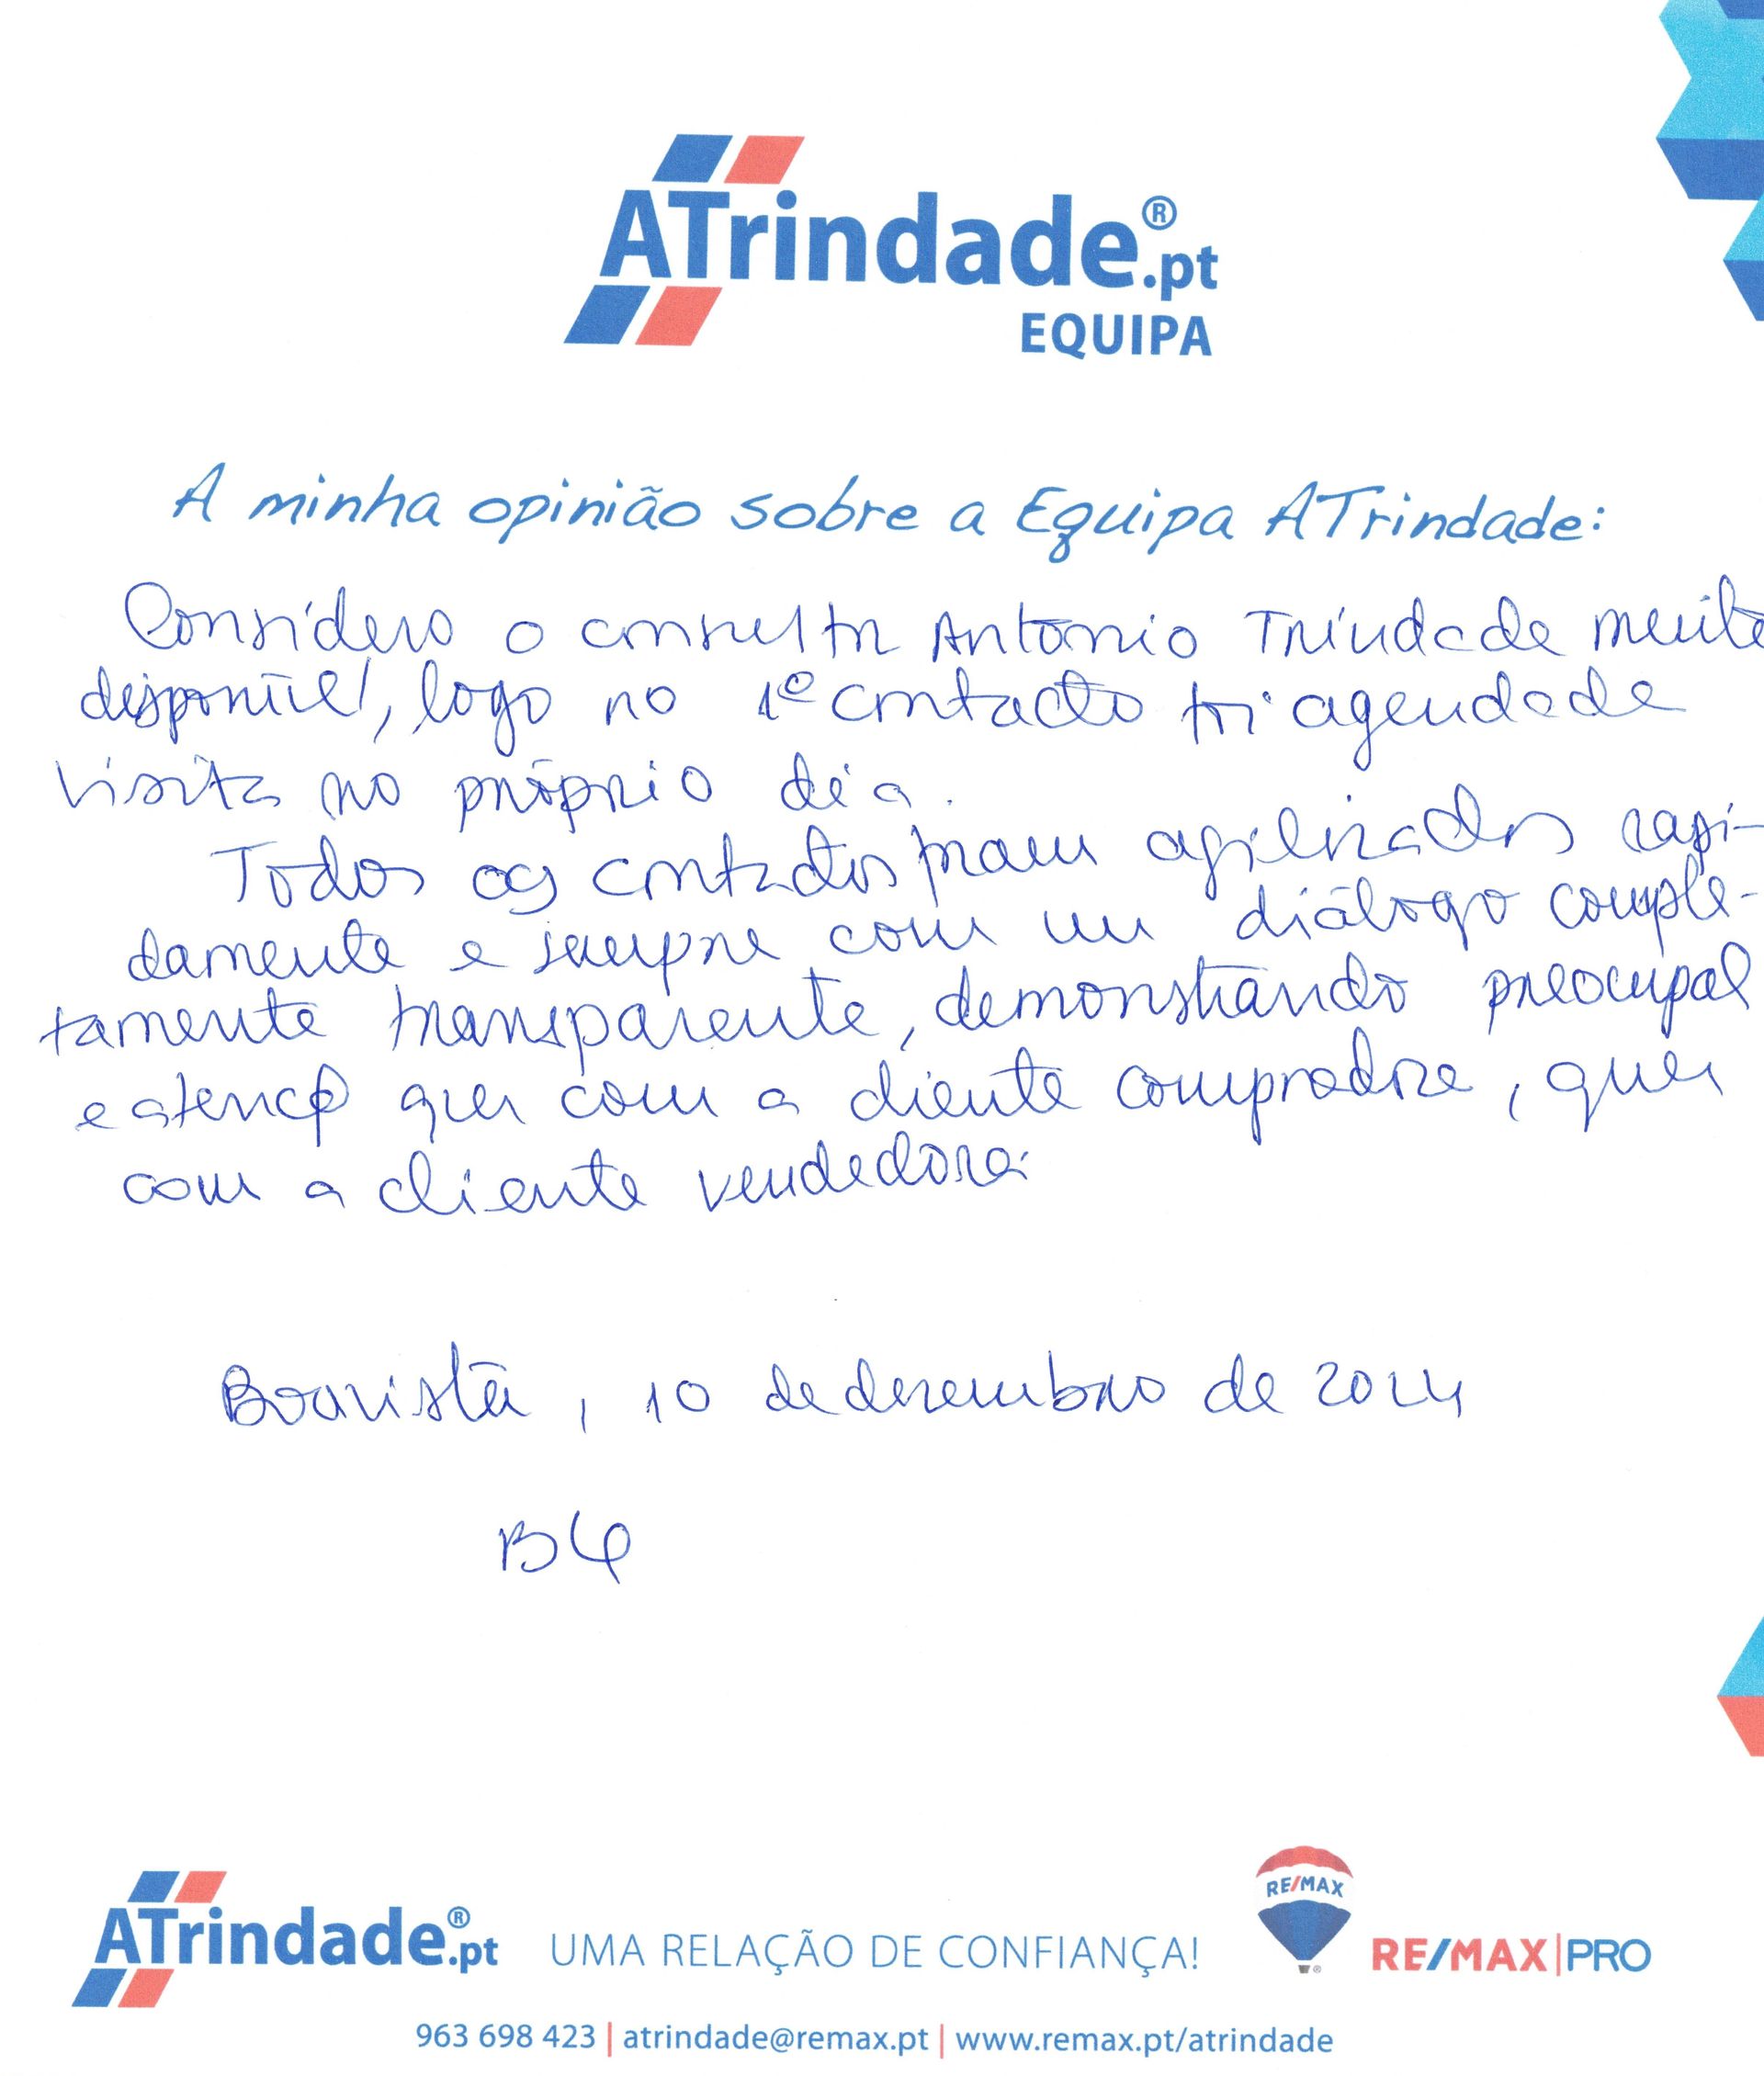 ATrindade®.pt
EQUIPA
A minha opinião sobre a Equipa ATrindade:
Considero o consultor António Trindade muito
disponível, logo no 1º contacto foi agendada
visita no próprio dia.
Todos os contactos foram agilizados rapi-
damente e sempre com um diálogo comple-
tamente transparente, demonstrando
e quer com a cliente compradora, quer
com a cliente vendedora.
Boavista, 10 de dezembro de 2024
ATrindade®.pt UMA RELAÇÃO DE CONFIANÇA! RE/MAX RE/MAX|PRO
963 698 423 | atrindade@remax.pt | www.remax.pt/atrindade